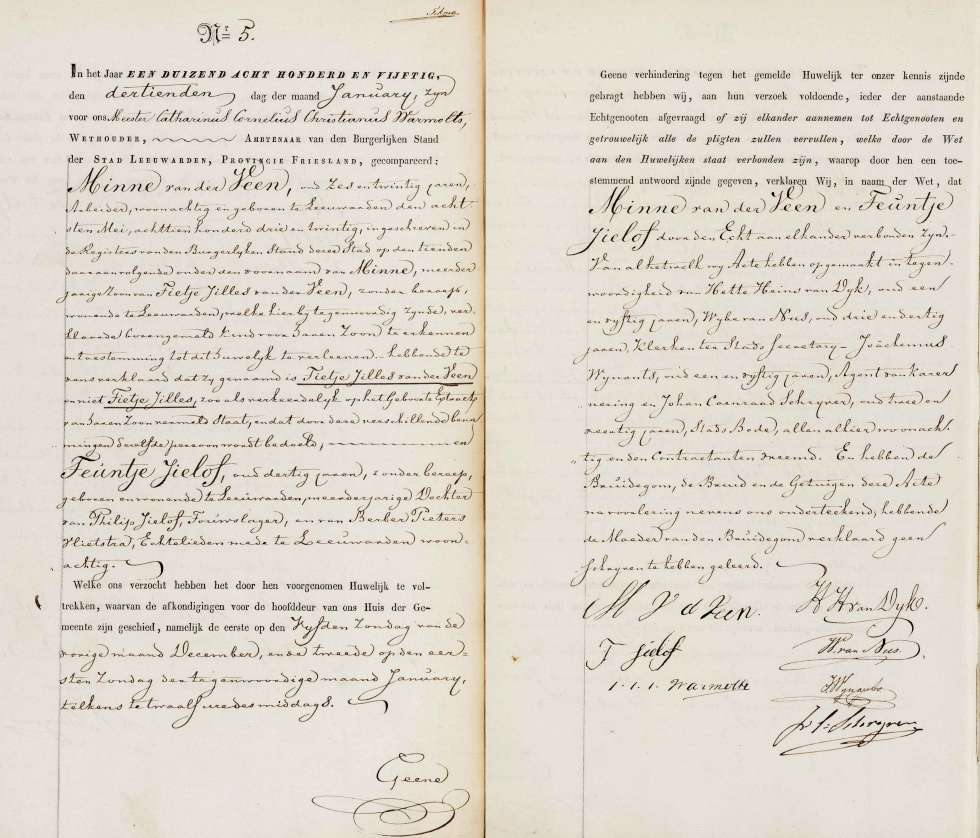 Nr. 5.
In het Jaar EEN DUIZEND ACHT HONDERD EN VIJFTIG,
den dertienden dag der maand January, zyn
voor ons Meester Catharinus Cornelius Christianus Warmolts,
WETHOUDER, AMBTENAAR van den Burgerlijken Stand
der STAD LEEUWARDEN, PROVINCIE FRIESLAND, gecompareerd:
Minne van der Veen, oud zes en twintig jaren,
Arbeider, woonachtig en geboren te Leeuwarden den acht-
sten Mei, achttien honderd drie en twintig, ingeschreven in
de Registers van den Burgerlyken Stand dezer Stad op den tienden
daaraanvolgende onder den voornaam van Minne, meerder
jarige Zoon van Fietje Jilles van der Veen, zonder beroep,
wonende te Leeuwarden, welke hier by tegenwoordig zynde, ver-
klaarde bovengemeld kind voor haren Zoon te erkennen
en toestemming tot dit huwelyk te verleenen hebbende te
vens verklaard dat zy genaamd is Fietje Jilles van der Veen
en niet Fietje Jilles, zoo als verkeerdelyk op het Geboorte Extract
van haren Zoon vermeld staat, en dat door deze verschillende bena
mingen dezelfde persoon wordt bedoeld, en
Feuntje Jielof, oud dertig jaren, zonder beroep,
geboren en wonende te Leeuwarden, meerderjarige Dochter
van Philip Jielof, Touwslager, en van Berber Pieters
Vlietstra, Echtelieden mede te Leeuwarden woon-
achtig.
Welke ons verzocht hebben het door hen voorgenomen Huwelijk te vol-
trekken, waarvan de afkondigingen voor de hoofddeur van ons Huis der Ge-
meente zijn geschied, namelijk de eerste op den Vyfden Zondag van de
vorige maand December, en de tweede op den eer-
sten Zondag der tegenwoordige maand January,
telkens te twaalf ure des middags.
Geene
Geene verhindering tegen het gemelde Huwelijk ter onzer kennis zijnde
gebragt hebben wij, aan hun verzoek voldoende, ieder der aanstaande
Echtgenooten afgevraagd of zij elkander aannemen tot Echtgenooten en
getrouwelijk alle de pligten zullen vervullen, welke door de Wet
aan den Huwelijken staat verbonden zijn, waarop door hen een toe-
stemmend antwoord zijnde gegeven, verklaren Wij, in naam der Wet, dat
Minne van der Veen en Feuntje
Jielof door den Echt aan elkander verbonden zyn.
Van al hetwelk wy Acte hebben opgemaakt in tegen-
woordigheid van Hette Heins van Dyk, oud een
en vyftig jaren, Wybe van Nus, oud drie en dertig
jaren, Klerken ter Stads Secretary Joachemus
Wynants, oud een en vyftig jaren, Agent van
nering en Johan Coenraad Schryver, oud twee en
veertig jaren, Stads Bode, allen alhier woonach
tig en den Contractanten vreemd. En hebben de
Bruidegom, de Bruid en de Getuigen deze Acte
na voorlezing nevens ons onderteekend, hebbende
de Moeder van den Bruidegom verklaard geen
schryven te hebben geleerd.
M V d Veen. H H van Dyk.
F Jielof W. van Nus.
Warmolts J Wynants
Schryver